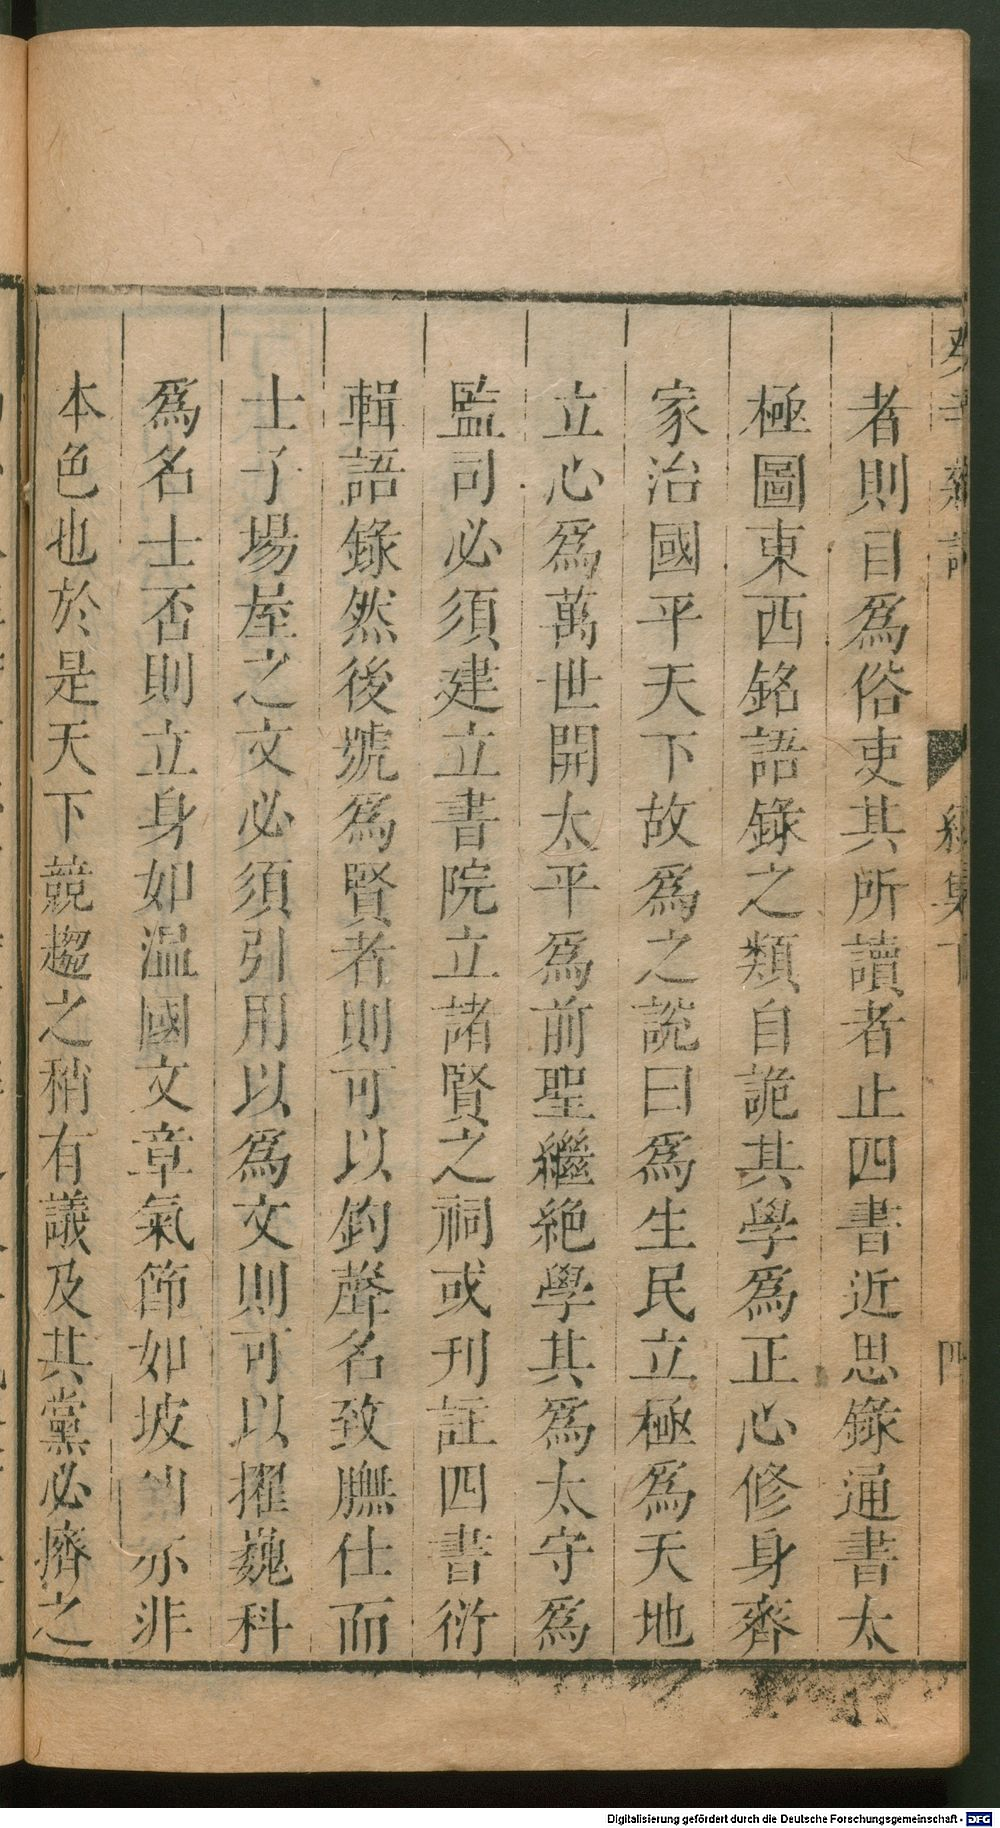 癸辛雜識
續集下
四
者則目為俗吏其所讀者止四書近思錄通書太
極圖東西銘語錄之類自詭其學為正心修身齊
家治國平天下故為之說曰為生民立極為天地
立心為萬世開太平為前聖繼絕學其為太守為
監司必須建立書院立諸賢之祠或刊註四書衍
輯語錄然後號為賢者則可以釣聲名致膴仕而
士子場屋之文必須引用以為文則可以擢巍科
為名士否則立身如溫國文章氣節如坡仙亦非
本色也於是天下競趨之稍有議及其黨必擠之
Digitalisierung gefördert durch die Deutsche Forschungsgemeinschaft - DFG